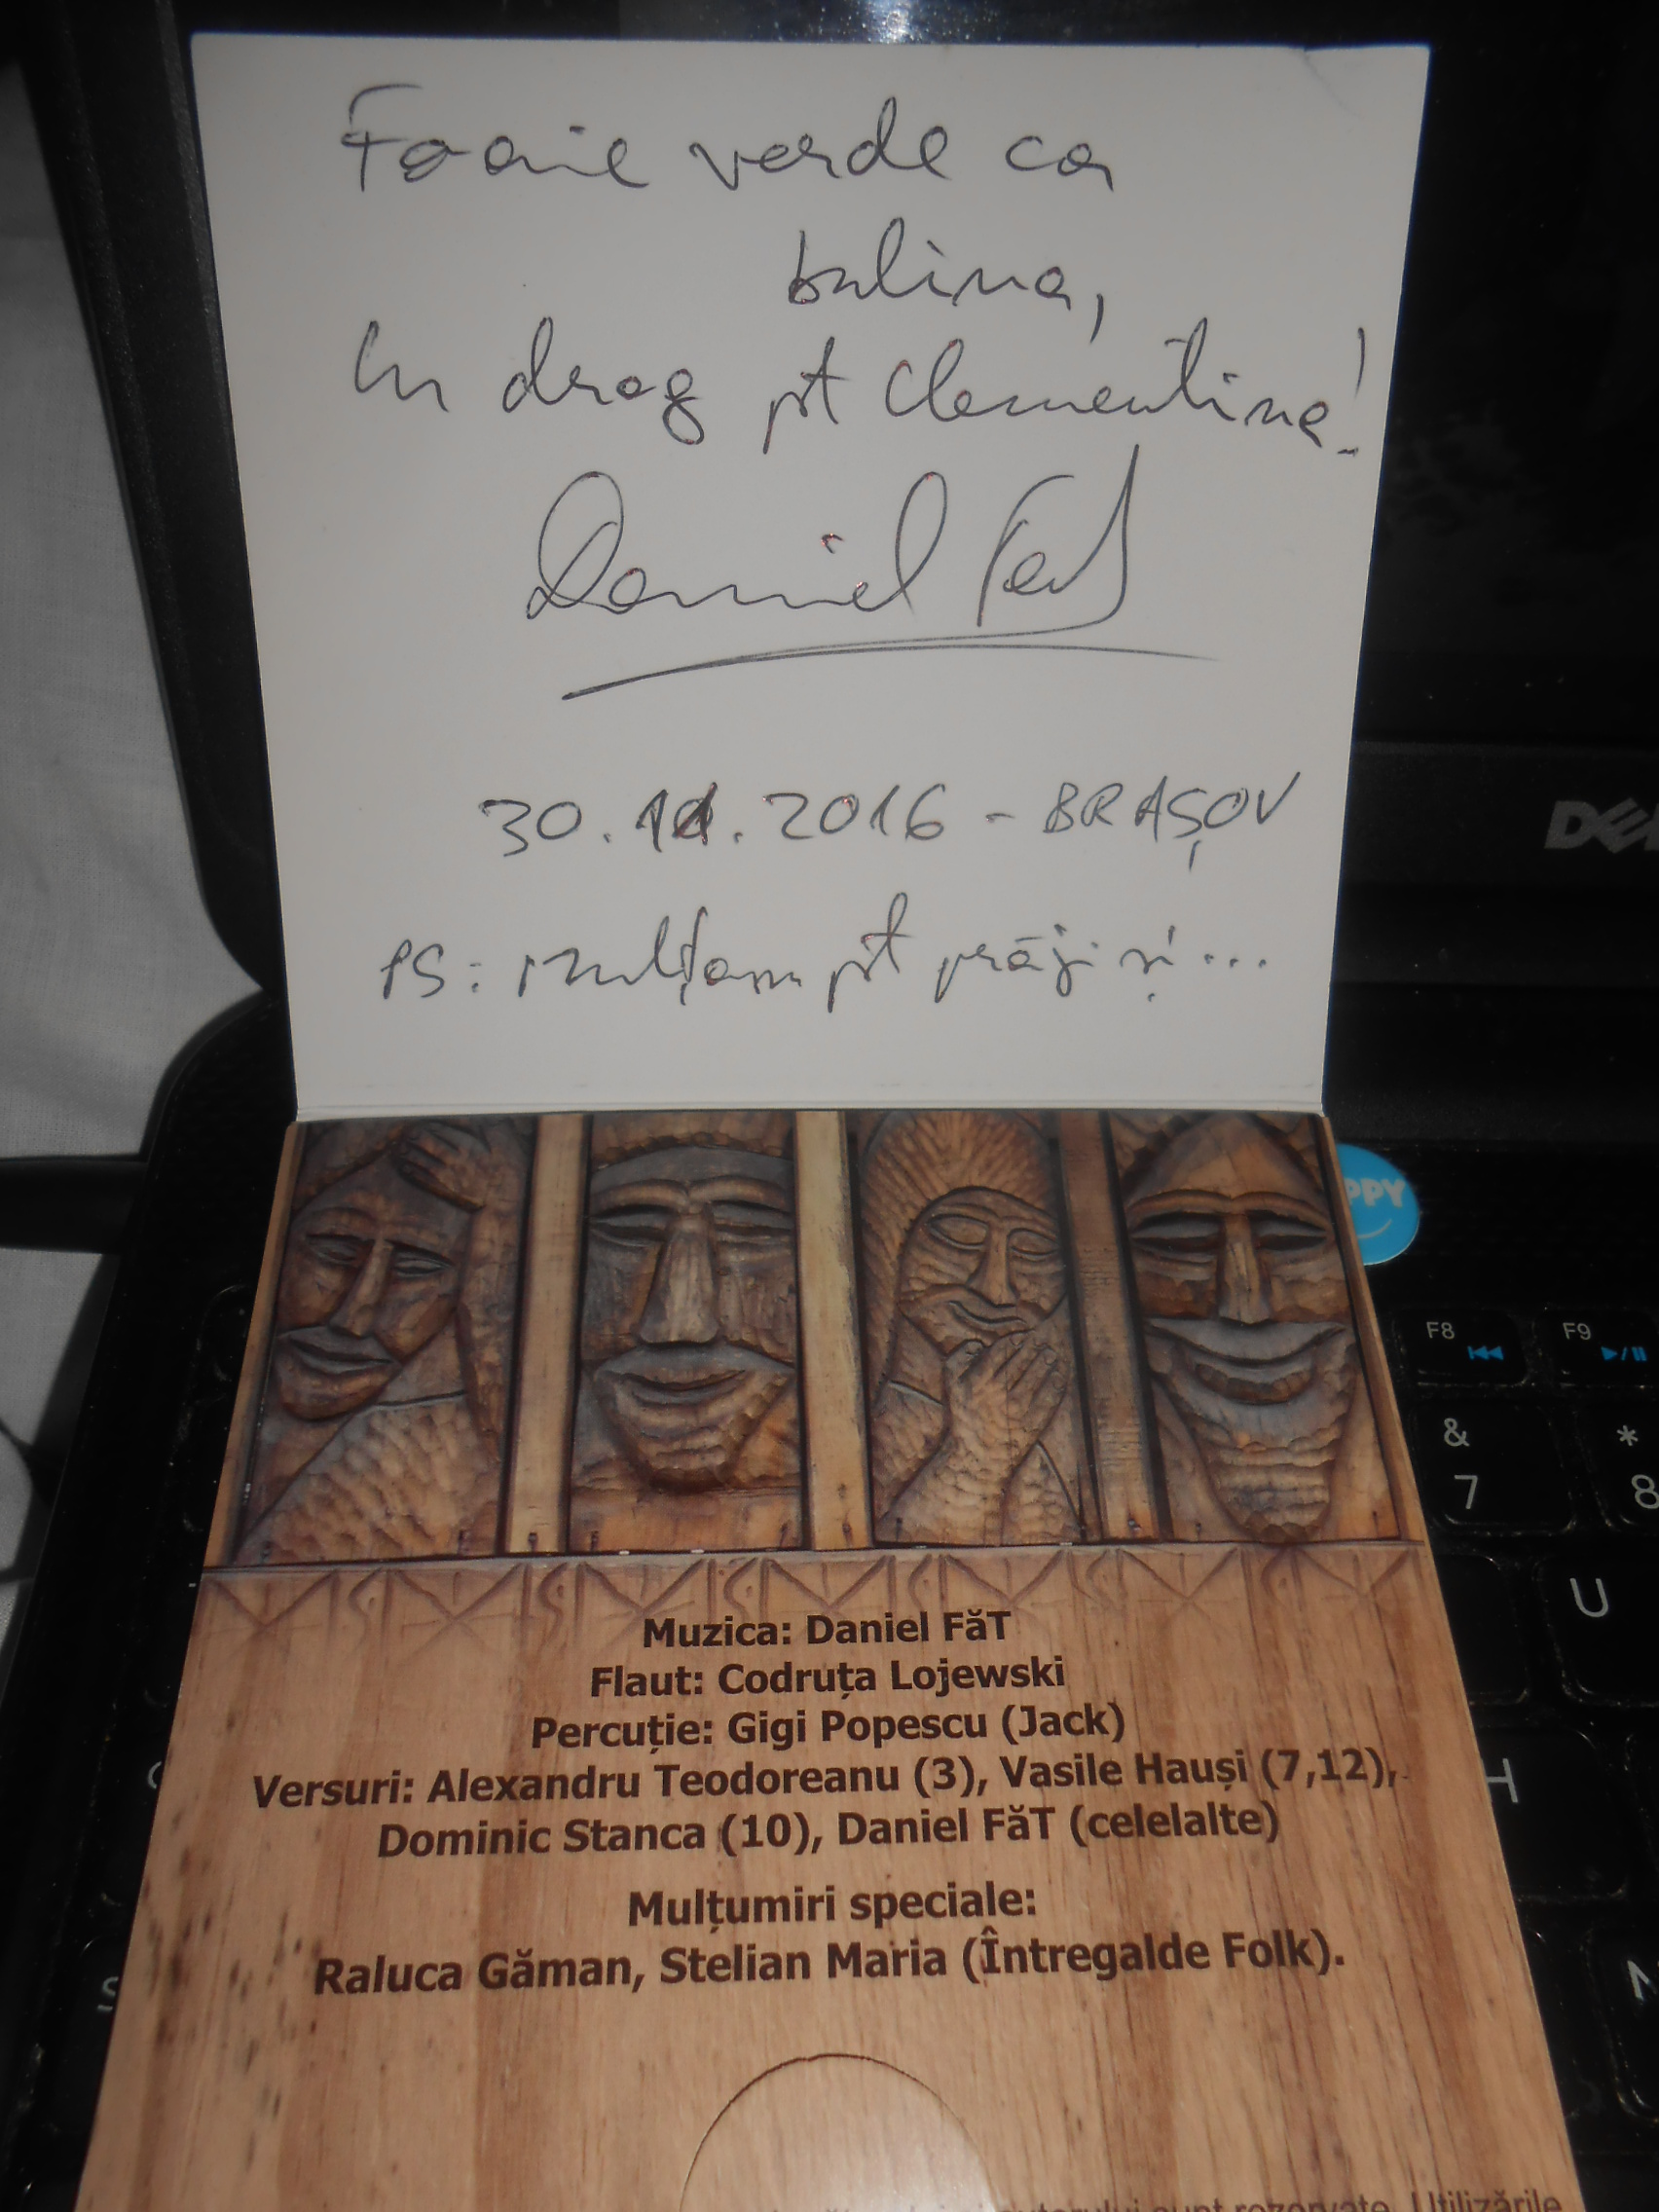 Foaie verde ca
bulina,
Cu drag pt Clementina!
Daniel Făt
30.11.2016 - BRAȘOV
PS: Mulțam pt prăji și...
DELL
PPY
F8
F9
&
7
*
8
U
H
Muzica: Daniel FăT
Flaut: Codruța Lojewski
Percuție: Gigi Popescu (Jack)
Versuri: Alexandru Teodoreanu (3), Vasile Hauși (7,12),
Dominic Stanca (10), Daniel FăT (celelalte)
Mulțumiri speciale:
Raluca Găman, Stelian Maria (Întregalde Folk).
sunt rezervate. Utilizările